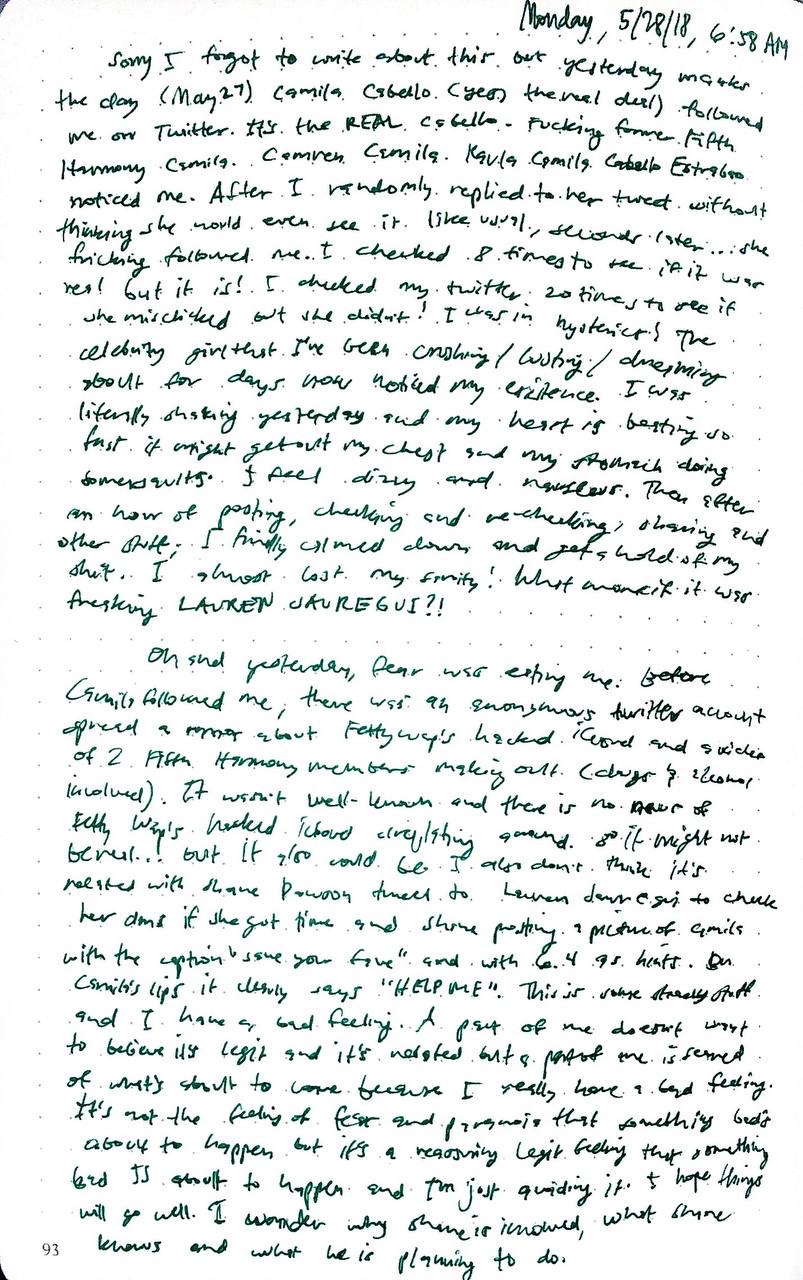 Monday, 5/28/18, 6:58 AM
Sorry I forgot to write about this but yesterday marks
the day (May 27) Camila Cabello (yes, the real deal) followed
me on Twitter. It's the REAL Cabello. Fucking former Fifth
Harmony Camila. Camren Camila. Karla Camila Cabello Estrabao
noticed me. After I randomly replied to her tweet without
thinking she would even see it like usual, seconds later... she
fricking followed me. I checked 8 times to see if it was
real but it is! I checked my twitter 20 times to see if
she misclicked but she didn't! I was in hysterics! The
celebrity girl that I've been crushing/lusting/dreaming
about for days now noticed my existence. I was
literally shaking yesterday and my heart is beating so
fast it might get out my chest and my stomach doing
somersaults. I feel dizzy and nauseous. Then after
an hour of posting, checking and re-checking, sharing and
other stuff, I finally calmed down and get a hold of my
shit. I almost lost my sanity! What more if it was
freaking LAUREN JAUREGUI?!
Oh and yesterday, fear was eating me. Before
Camila followed me, there was an anonymous twitter account
spread a rumor about Fetty Wap's hacked icloud and a video
of 2 Fifth Harmony members making out. (drugs & alcohol
involved). It wasn't well-known and there is no news of
Fetty Wap's hacked icloud circulating around. so it might not
be real... but it also could be. I also don't think it's
related with Shane Dawson tweet to Lauren Jauregui to check
her dms if she got time and Shane posting a picture of Camila
with the caption "save your fave" and with 6.4 as hints. On
Camila's lips it clearly says "HELP ME". This is some stuff
and I have a bad feeling. A part of me doesn't want
to believe it's legit and it's related but a part of me is scared
of what's about to come because I really have a bad feeling.
It's not the feeling of fear and paranoia that something bad's
about to happen but it's a reasoning legit feeling that something
bad IS about to happen and I'm just avoiding it. I hope things
will go well. I wonder why Shane is involved, what Shane
knows and what he is planning to do.
93